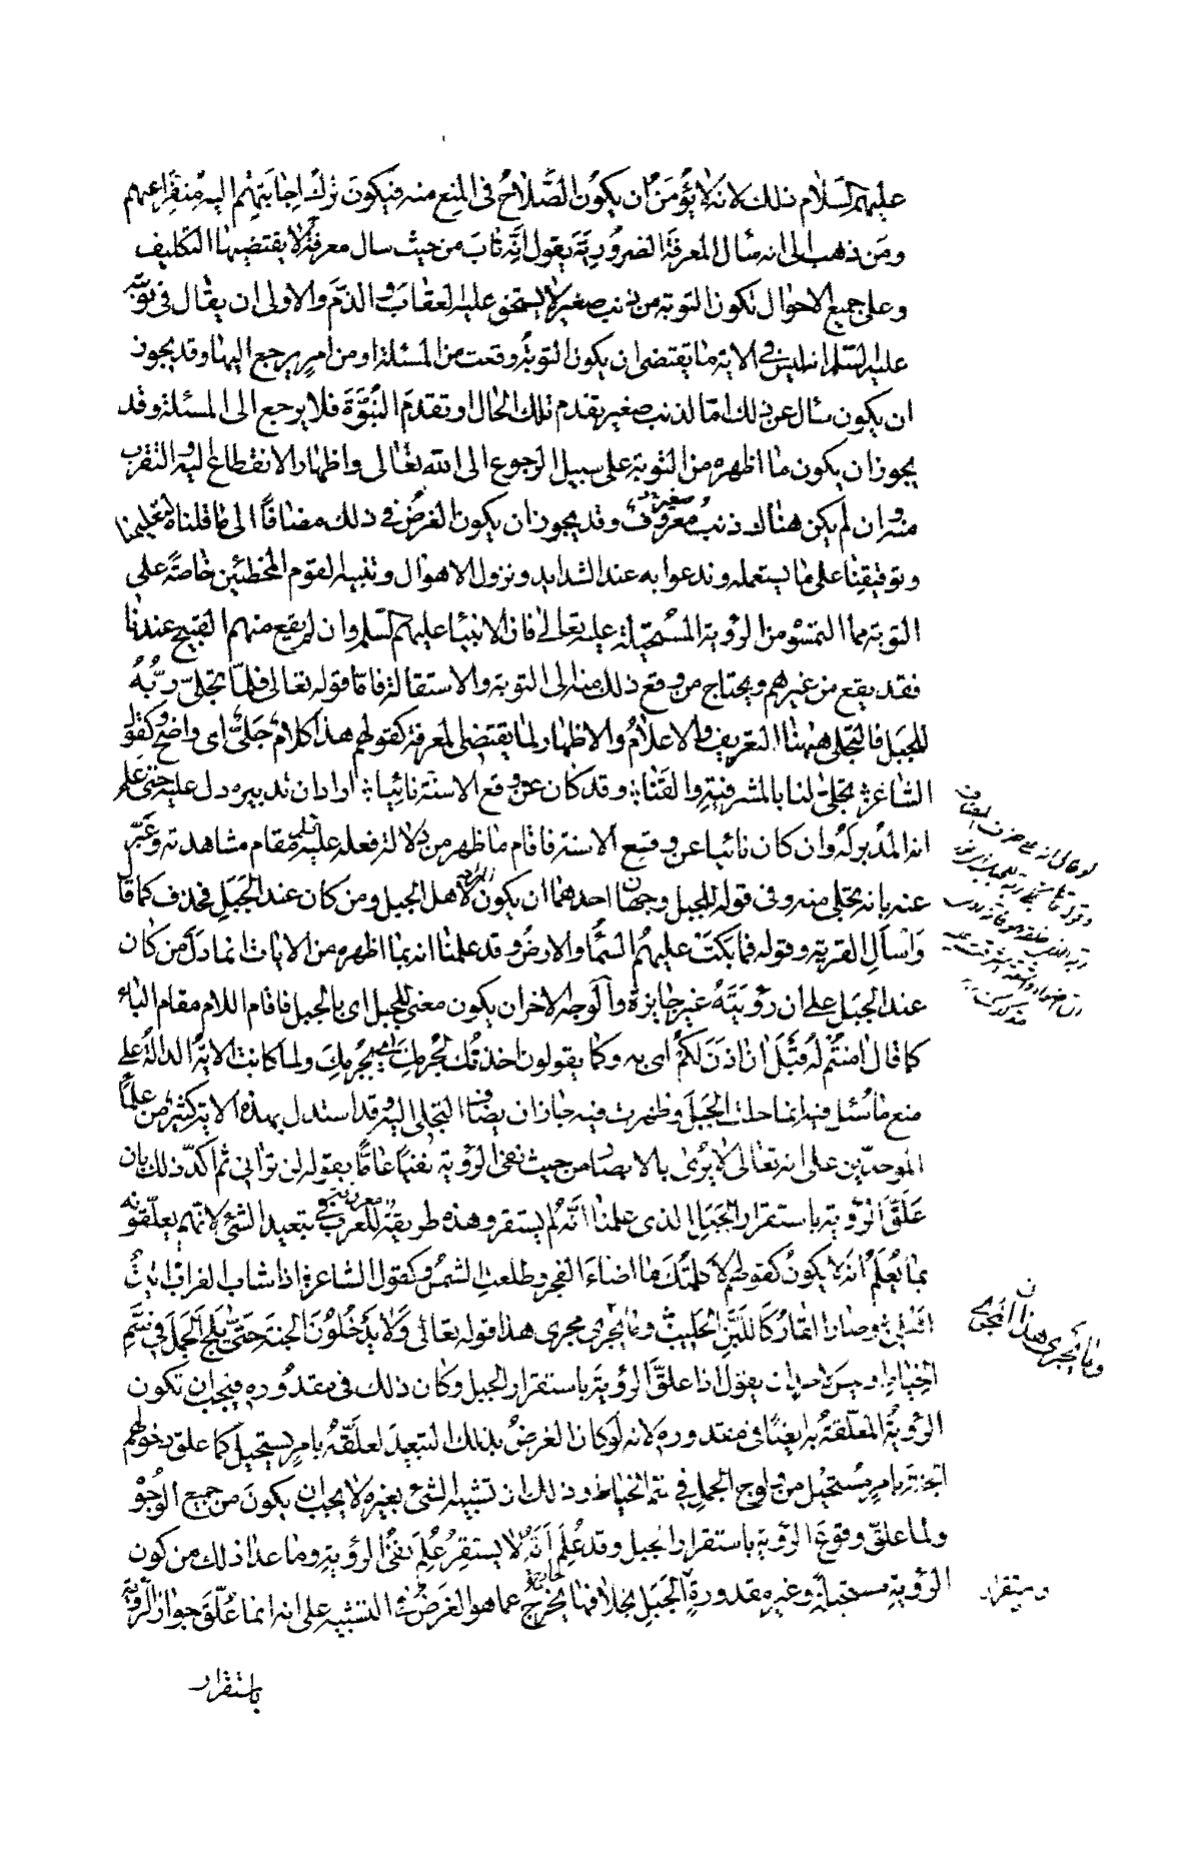 عليهم السلام ذلك لانه لا يؤمن ان يكون الصلاح في المنع منه فيكون ترك اجابتهم اليه منفرا عنهم
ومن ذهب الى انه سال المعرفة الضرورية يقول انه تاب من حيث سال معرفة لا يقتضيها التكليف
وعلى جميع الاحوال تكون التوبة من ذنب صغير لا يستحق عليه العقاب والذم والاولى ان يقال في توبته
عليه السلم انه ليس في الاية ما يقتضى ان يكون التوبة وقعت من المسئلة او من امر يرجع اليها وقد يجوز
ان يكون سال عن ذلك اما لذنب صغير تقدم تلك الحال او تقدم النبوة فلا يرجع الى المسئلة وقد
يجوز ان يكون ما اظهره من التوبة على سبيل الرجوع الى الله تعالى واظهار الانقطاع اليه والتقرب
منه وان لم يكن هناك ذنب معروف وقد يجوز ان يكون الغرض في ذلك مضافا الى ما قلناه تعليمنا
وتوقيفنا على ما يستعمله وندعوا به عند الشدايد ونزول الاهوال وتنبيه القوم المخطئين خاصة على
التوبة مما التمسوه من الرؤية المستحيلة عليه تعالى فان الانبياء عليهم السلم وان لم يقع منهم القبيح عندنا
فقد يقع من غيرهم ويحتاج من وقع ذلك منه الى التوبة والاستقالة فاما قوله تعالى فلما تجلى ربه
للجبل فالتجلى ههنا التعريف والاعلام والاظهار لما يقتضى المعرفة كقولهم هذا كلام جلى اى واضح وكقول
الشاعر تجلى لنا بالمشرفية والقنا وقد كان عن وقع الاسنة نائيا اراد ان تدبيره دل عليه حتى علم
انه المدبر له وان كان نائيا عن وقع الاسنة فاقام ما ظهر من دلالة فعله عليه مقام مشاهدته وعبر
عنه بانه تجلى منه وفى قوله للجبل وجهان احدهما ان يكون لاهل الجبل ومن كان عند الجبل فحذف كما قال
واسال القرية وقوله فما بكت عليهم السماء والارض وقد علمنا انه بما اظهره من الايات انما دل من كان
عند الجبل على ان رؤيته غير جايزة والوجه الاخر ان يكون معنى للجبل اى بالجبل فاقام اللام مقام الباء
كما قال امنتم له قبل ان اذن لكم اى به وكما يقولون اخذتك لجرمك اى بجرمك ولما كانت الاية الدالة على
منع ما سئل فيه انما حلت الجبل وظهرت فيه جاز ان يضاف التجلى اليه وقد استدل بهذه الاية كثير من علماء
الموحدين على انه تعالى لا يرى بالابصار من حيث نفى الرؤية نفيا عاما بقوله لن ترانى ثم اكد ذلك بان
علق الرؤية باستقرار الجبل الذى علمنا انه لم يستقر وهذه طريقة للعرب معروفة في تبعيد الشئ لانهم يعلقونه
بما يعلم انه لا يكون كقولهم لا كلمتك ما اضاء الفجر وطلعت الشمس وكقول الشاعر اذا شاب الغراب اتيت
اهلى وصار القار كاللبن الحليب وما يجرى مجرى هذا قوله تعالى ولا يدخلون الجنة حتى يلج الجمل في سم
الخياط وليس لاحد ان يقول اذا علق الرؤية باستقرار الجبل وكان ذلك في مقدوره فيجب ان تكون
الرؤية المعلقة به ايضا في مقدوره لانه لو كان الغرض بذلك التبعيد لعلقه بامر يستحيل كما علق دخولهم
الجنة بامر مستحيل من ولوج الجمل في سم الخياط وذلك ان تشبيه الشئ بغيره لا يجب ان يكون من جميع الوجوه
ولما علق وقوع الرؤية باستقرار الجبل وقد علم انه لا يستقر علم نفى الرؤية وما عدا ذلك من كون
الرؤية مستحيلة وغير مقدورة الجبل بخلافها يخرج عما هو الغرض في التشبيه على انه انما علق جواز الرؤية
باستقرار
وما يجرى هذا المجرى
واستقرار